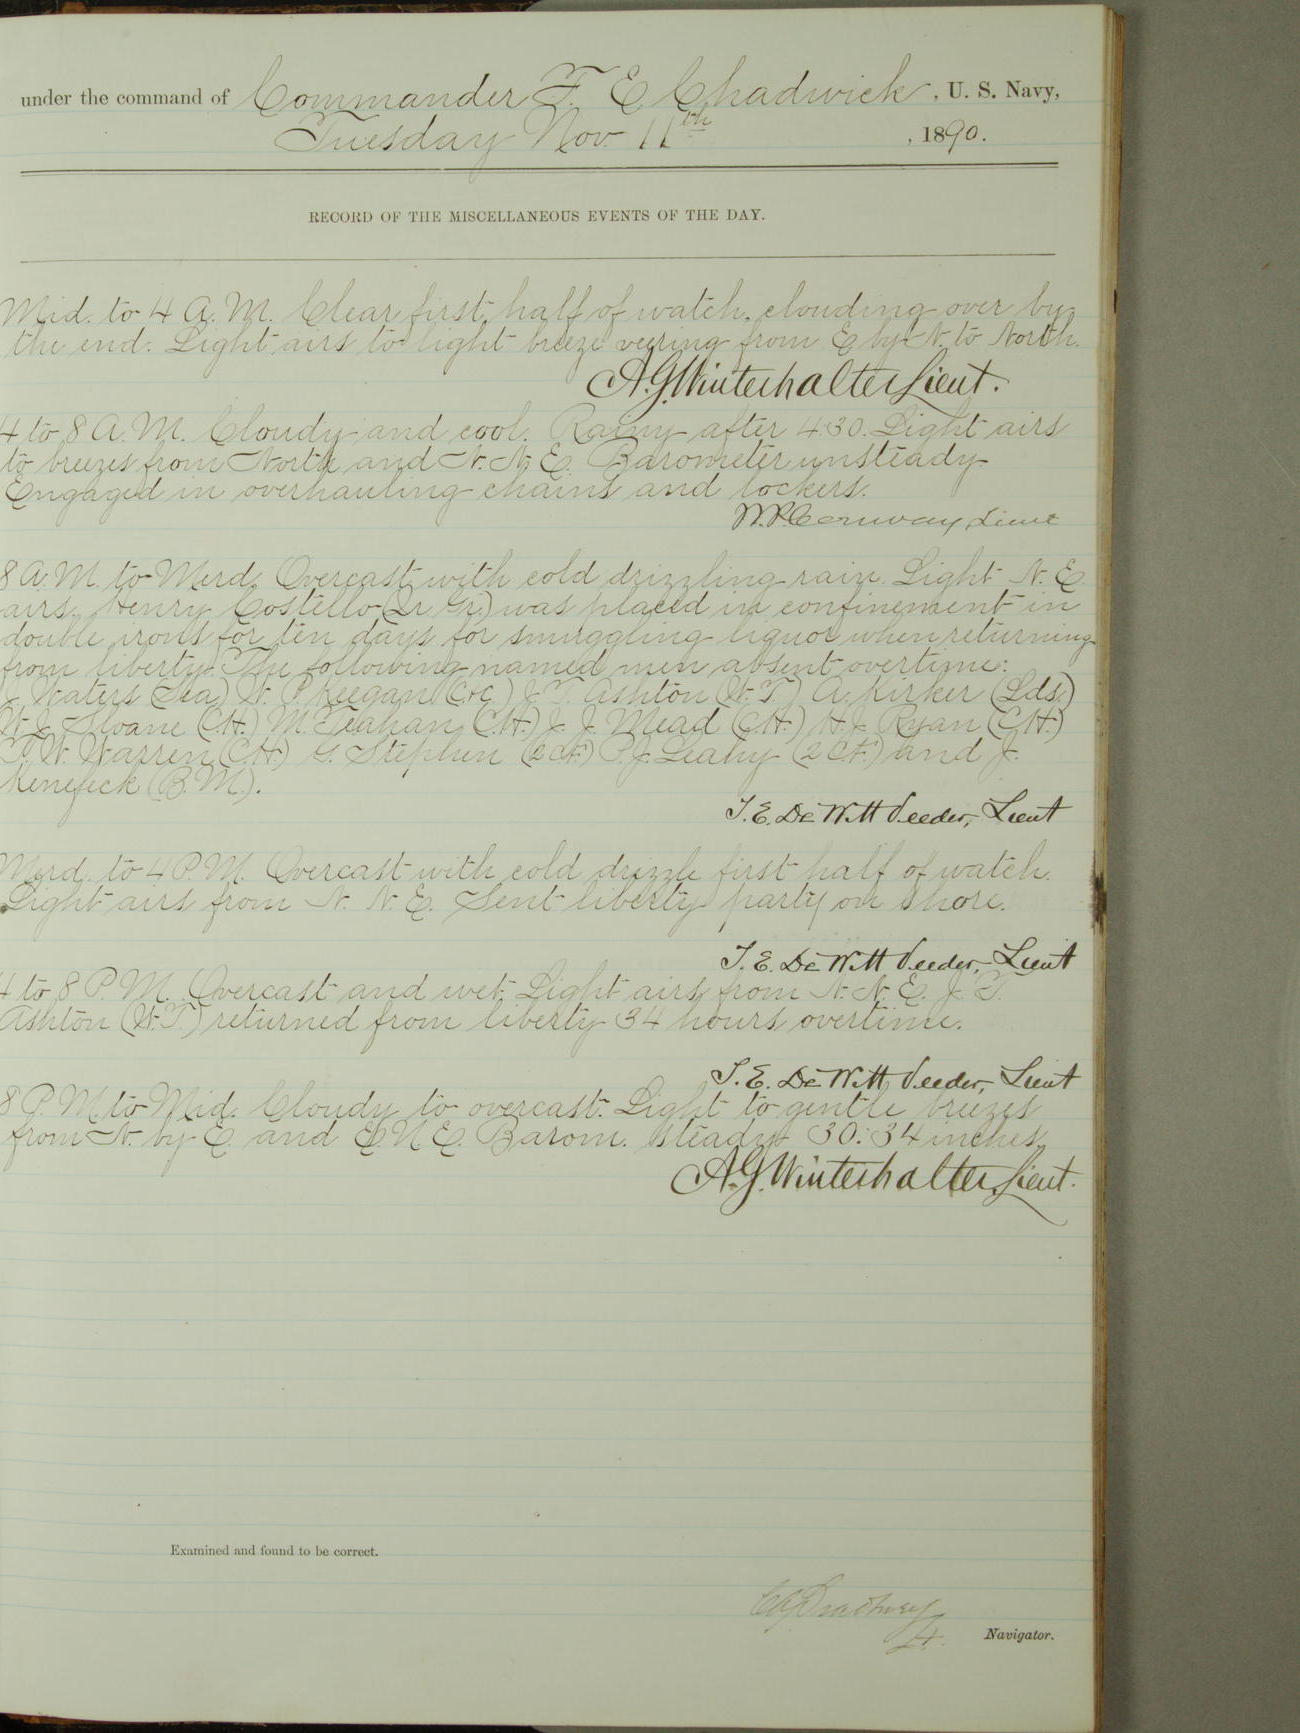 under the command of Commander F. E. Chadwick, U. S. Navy,
Tuesday Nov. 11th, 1890.
RECORD OF THE MISCELLANEOUS EVENTS OF THE DAY.
Mid. to 4 A.M. Clear first half of watch, clouding over by
the end. Light airs to light breeze veering from E by N. to North.
A. G. Winterhalter Lieut.
4 to 8 A.M. Cloudy and cool. Rainy after 4.30. Light airs
to breezes from North and N. N. E. Barometer unsteady
Engaged in overhauling chains and lockers.
W. P. Conway Lieut
8 A.M. to Merd. Overcast with cold drizzling rain. Light N. E.
airs. Henry Costello (Sr Gr.) was placed in confinement in
double irons for ten days for smuggling liquor when returning
from liberty. The following named men absent overtime:
J. Waters (Sea) W. P. Keegan J. T. Ashton (W.T.) A. Kirker (Lds.)
W. J. Sloane (C.H.) M. Teahan (C.H.) J. J. Mead (C.H.) H. J. Ryan (C.H.)
T. W. Warren (C.H.) G. Stephen P. J. Leahy and J.
Kenefeck (B.M.).
T. E. De Witt Veeder, Lieut
Merd. to 4 P.M. Overcast with cold drizzle first half of watch.
Light airs from N. N. E. Sent liberty party on shore.
T. E. De Witt Veeder, Lieut
4 to 8 P.M. Overcast and wet. Light airs from N. N. E. J. T.
Ashton (W.T.) returned from liberty 34 hours overtime.
T. E. De Witt Veeder, Lieut
8 P.M. to Mid. Cloudy to overcast. Light to gentle breezes
from N. by E. and E N E. Barom. steady 30.34 inches.
A. G. Winterhalter, Lieut.
Examined and found to be correct.
Navigator.